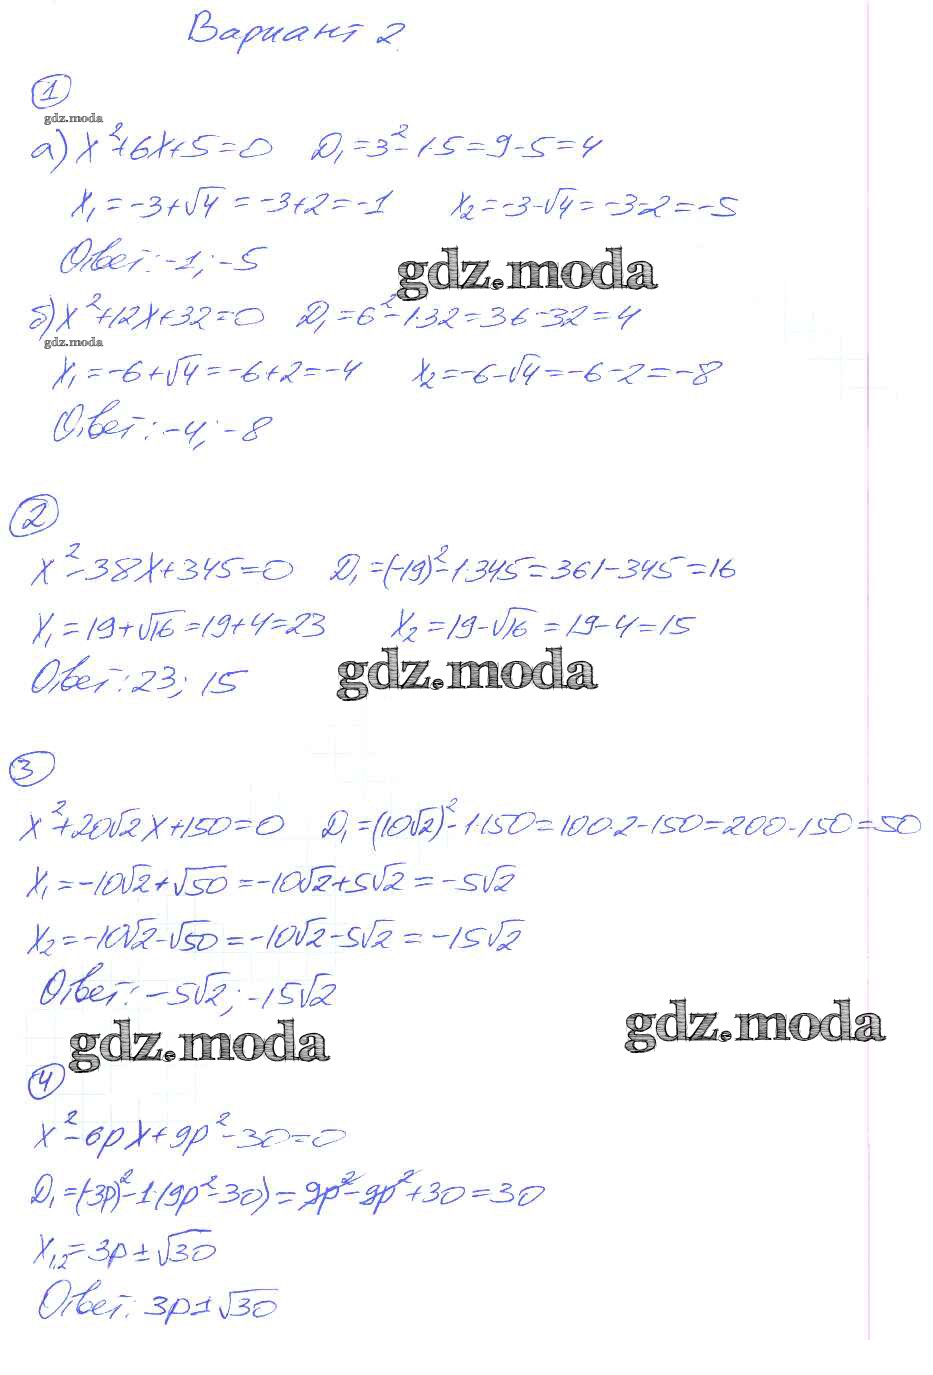 Вариант 2.
1
gdz.moda
а) x²+6x+5=0   D₁=3²-1·5=9-5=4
x₁=-3+√4=-3+2=-1   x₂=-3-√4=-3-2=-5
Ответ: -1; -5
gdz.moda
б) x²+12x+32=0   D₁=6²-1·32=36-32=4
gdz.moda
x₁=-6+√4=-6+2=-4   x₂=-6-√4=-6-2=-8
Ответ: -4; -8
2
x²-38x+345=0   D₁=(-19)²-1·345=361-345=16
x₁=19+√16=19+4=23   x₂=19-√16=19-4=15
Ответ: 23; 15
gdz.moda
3
x²+20√2x+150=0   D₁=(10√2)²-1·150=100·2-150=200-150=50
x₁=-10√2+√50=-10√2+5√2=-5√2
x₂=-10√2-√50=-10√2-5√2=-15√2
Ответ: -5√2; -15√2
gdz.moda
gdz.moda
4
x²-6px+9p²-30=0
D₁=(-3p)²-1·(9p²-30)=9p²-9p²+30=30
x₁,₂=3p±√30
Ответ: 3p±√30